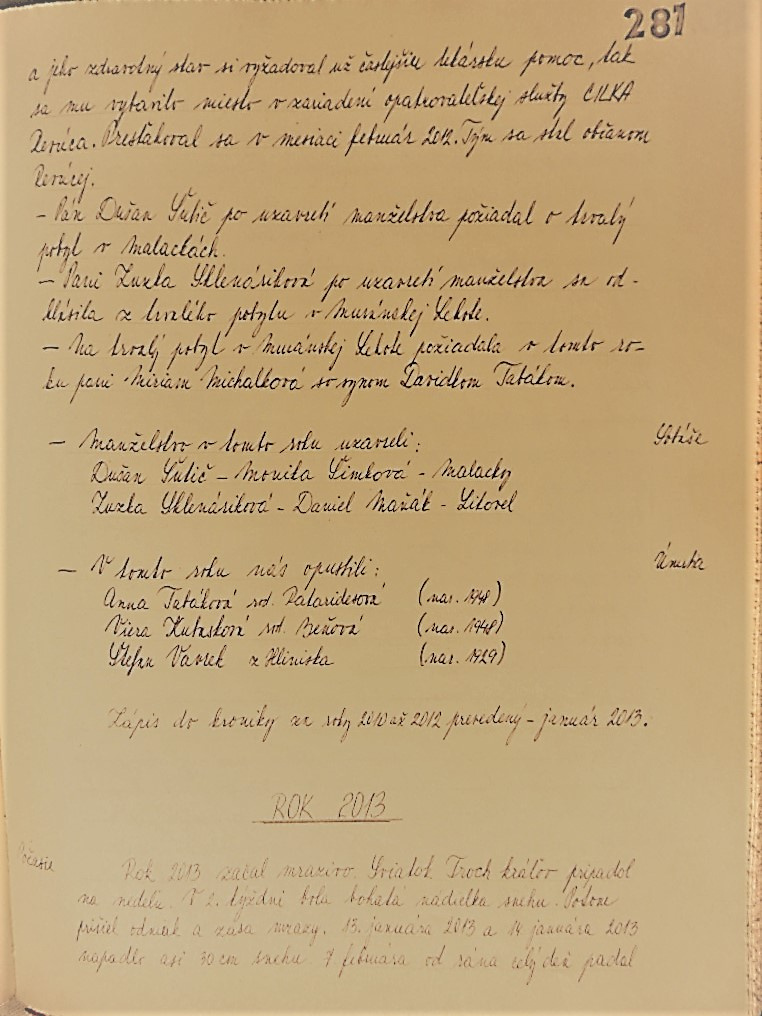 287
a jeho zdravotný stav si vyžadoval už častejšiu lekársku pomoc, tak
sa mu vybavilo miesto v zariadení opatrovateľskej služby CILKA
Revúca. Presťahoval sa v mesiaci február 2012. Tým sa stal občanom
Revúcej.
- Pán Dušan Šutič po uzavretí manželstva požiadal o trvalý
pobyt v Malackách.
- Pani Zuzka Sklenáriková po uzavretí manželstva sa od-
hlásila z trvalého pobytu v Muránskej Lehote.
- Na trvalý pobyt v Muránskej Lehote požiadala v tomto ro-
ku pani Miriam Michalková so synom Davidkom Tabákom.
- Manželstvo v tomto roku uzavreli: Sobáše
Dušan Šutič - Monika Šimková - Malacky
Zuzka Sklenáriková - Daniel Mažák - Litovel
- V tomto roku nás opustili: Úmrtia
Anna Tabáková rod. (nar. 1948)
Viera rod. Beňová (nar. 1948)
Štefan Vavrek z Hliniska (nar. 1929)
Zápis do kroniky za roky 2010 až 2012 prevedený - január 2013.
ROK 2013
Počasie Rok 2013 začal mrazivo. Sviatok Troch kráľov pripadol
na nedeľu. V 2. týždni bola bohatá nádielka snehu. Potom
prišiel odmäk a zasa mrazy. 13. januára 2013 a 14 januára 2013
napadlo asi 30 cm snehu. 7 februára od rána celý deň padal